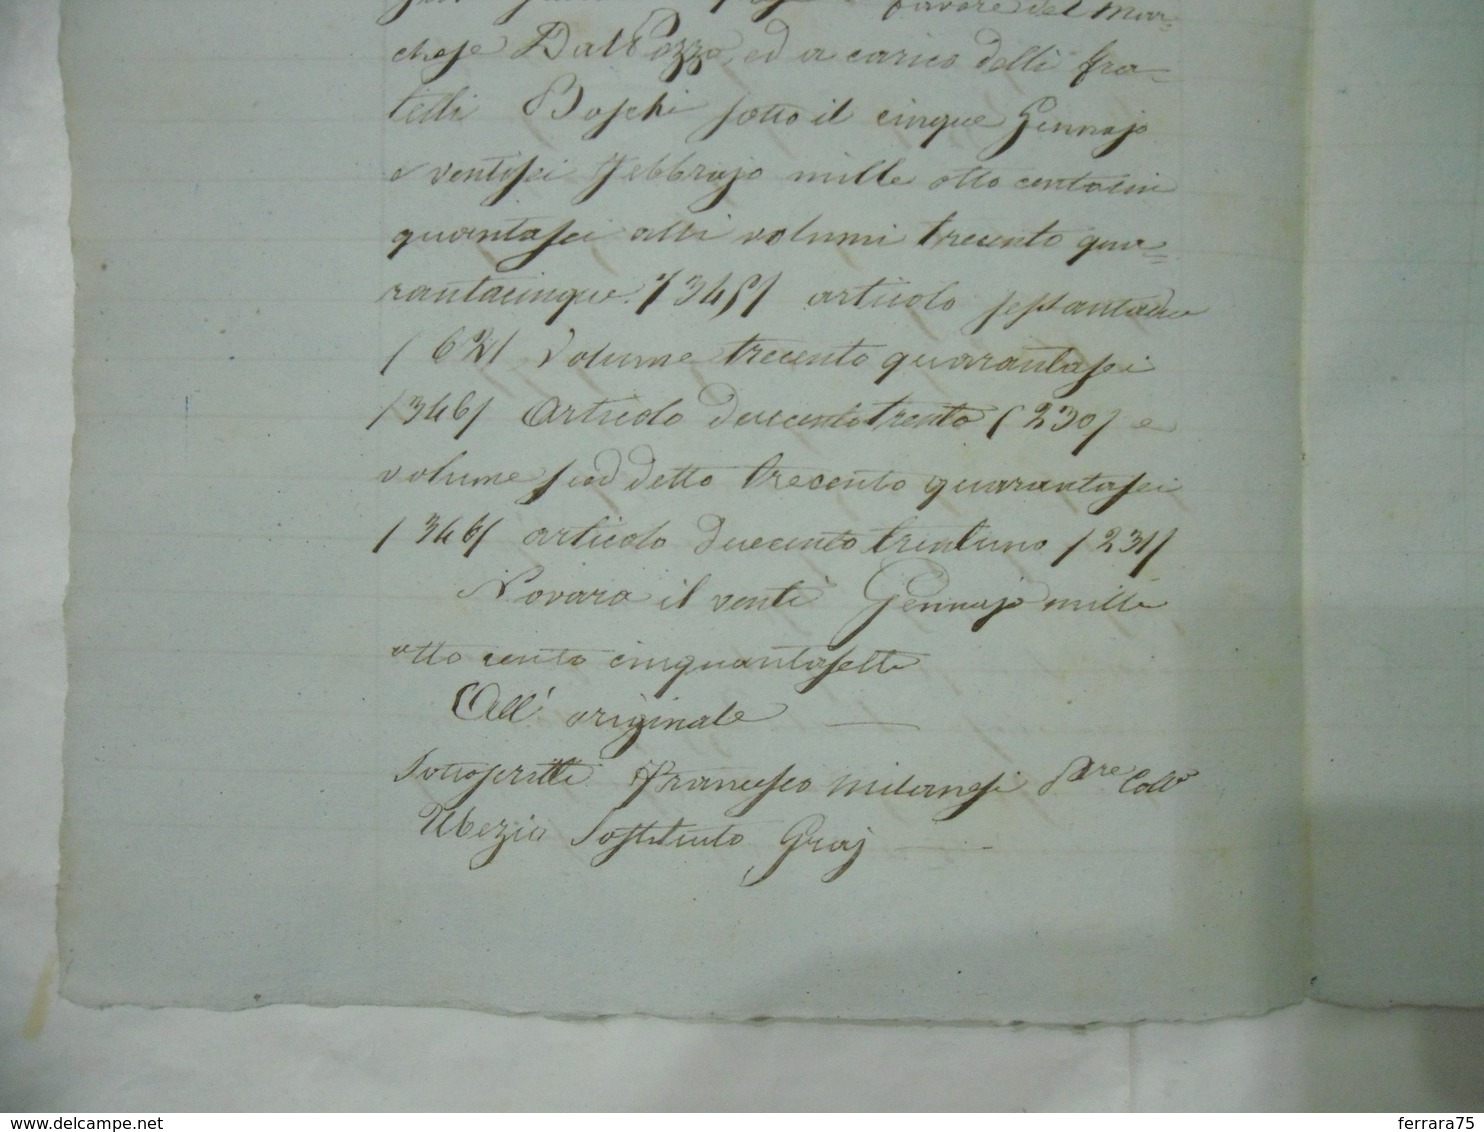 favore del Mar=
chese Dal Pozzo, ed a carico delli fra=
telli Boschi sotto il cinque Gennajo
e ventisei Febbrajo mille otto centocin
quantasei alli volumi trecento qua=
rantacinque /345/ articolo
/ 62/ Volume trecento quarantasei
/346/ Articolo duecentotrenta /230/ e
volume suddetto trecento quarantasei
/346/ articolo duecento trentuno /231/
Novara il venti Gennajo mille
otto cento cinquantasette
All' originale
Sottoscritti Francesco Milanesi
Sostituto
delcampe.net
ferrara75